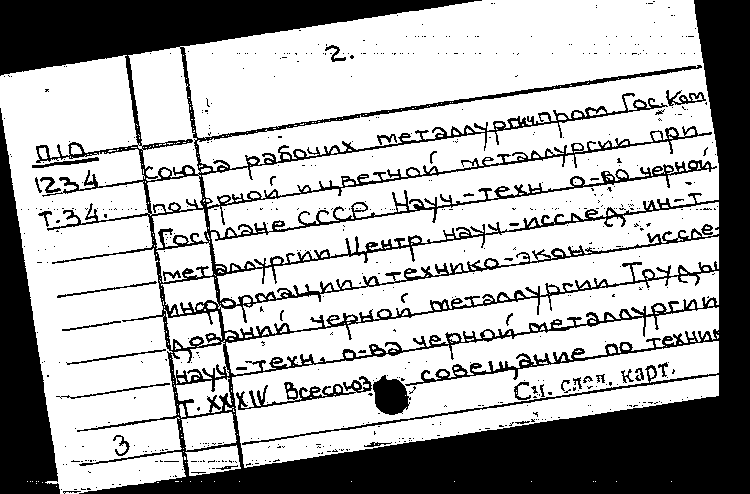 2.
П10
1234
Т.34.
союза рабочих металлургич. пром. Гос. Ком
по черной и цветной металлургии при
Госплане СССР. Науч.-техн. о-во черной
металлургии Центр. науч-исслед. ин-т
информации и технико-экон. иссле-
дований черной металлургии Труды
науч.-техн. о-ва черной металлургии
Т. XXXIV. Всесоюз. совещание по техни
См. след. карт.
3